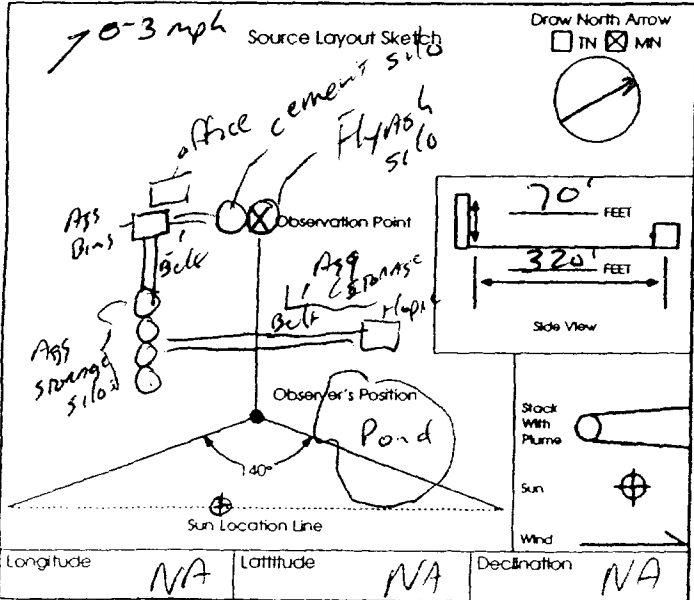 0-3 mph
Source Layout Sketch
Draw North Arrow
TN MN
office
cement silo
Flyash
silo
Agg
Bins
Belt
Observation Point
70' FEET
320' FEET
Side View
Agg
storage
Belt
Agg
storage
silos
Observer's Position
Pond
140°
Sun Location Line
Stack
With
Plume
Sun
Wind
Longitude NA
Lattitude NA
Declination NA